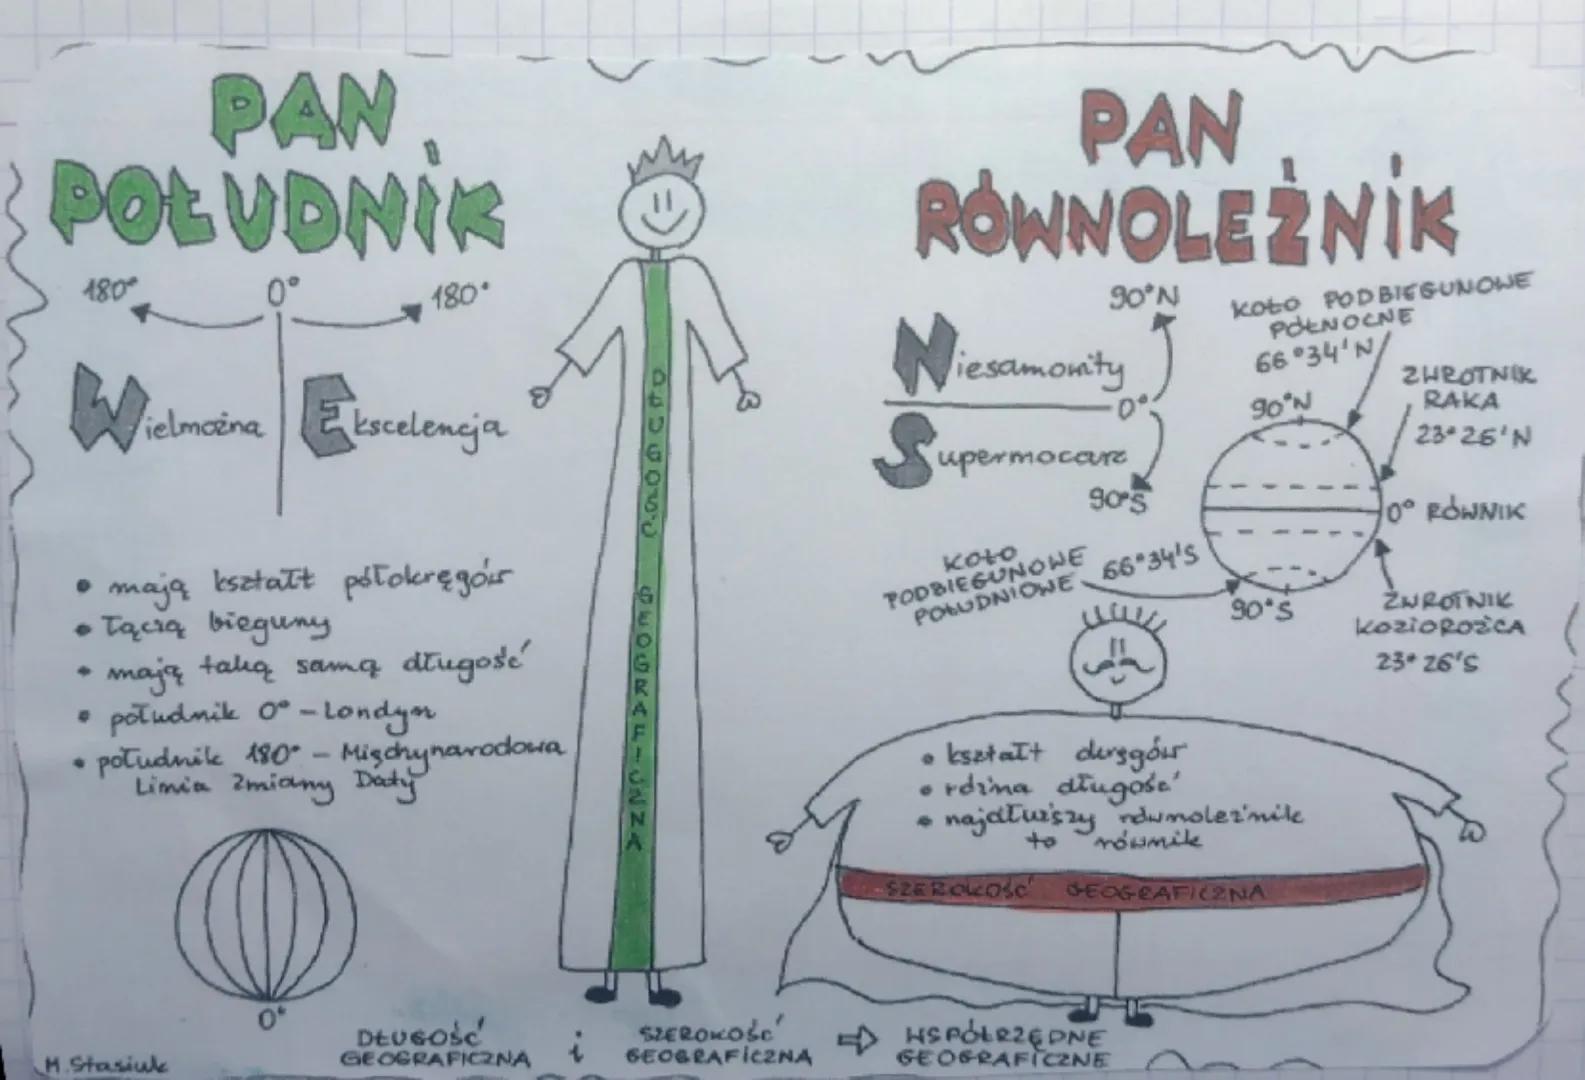 PAN
POŁUDNIK
180°
0°
180°
Wielmożna
Ekscelencja
• mają kształt półokręgów
• łączą bieguny
• mają taką samą długość
• południk 0° – Londyn
• południk 180° – Międzynarodowa
Linia Zmiany Daty
0°
M. Stasiuk
DŁUGOŚĆ GEOGRAFICZNA
PAN
RÓWNOLEŻNIK
90°N
Niesamowity
0°
Supermocarz
90°S
KOŁO PODBIEGUNOWE
PÓŁNOCNE
66°34'N
90°N
ZWROTNIK
RAKA
23°26'N
0° RÓWNIK
KOŁO
PODBIEGUNOWE
POŁUDNIOWE
66°34'S
90°S
ZWROTNIK
KOZIOROŻCA
23°26'S
• kształt okręgów
• różna długość
• najdłuższy równoleżnik
to równik
SZEROKOŚĆ GEOGRAFICZNA
DŁUGOŚĆ
GEOGRAFICZNA
i
SZEROKOŚĆ
GEOGRAFICZNA
⇒
WSPÓŁRZĘDNE
GEOGRAFICZNE